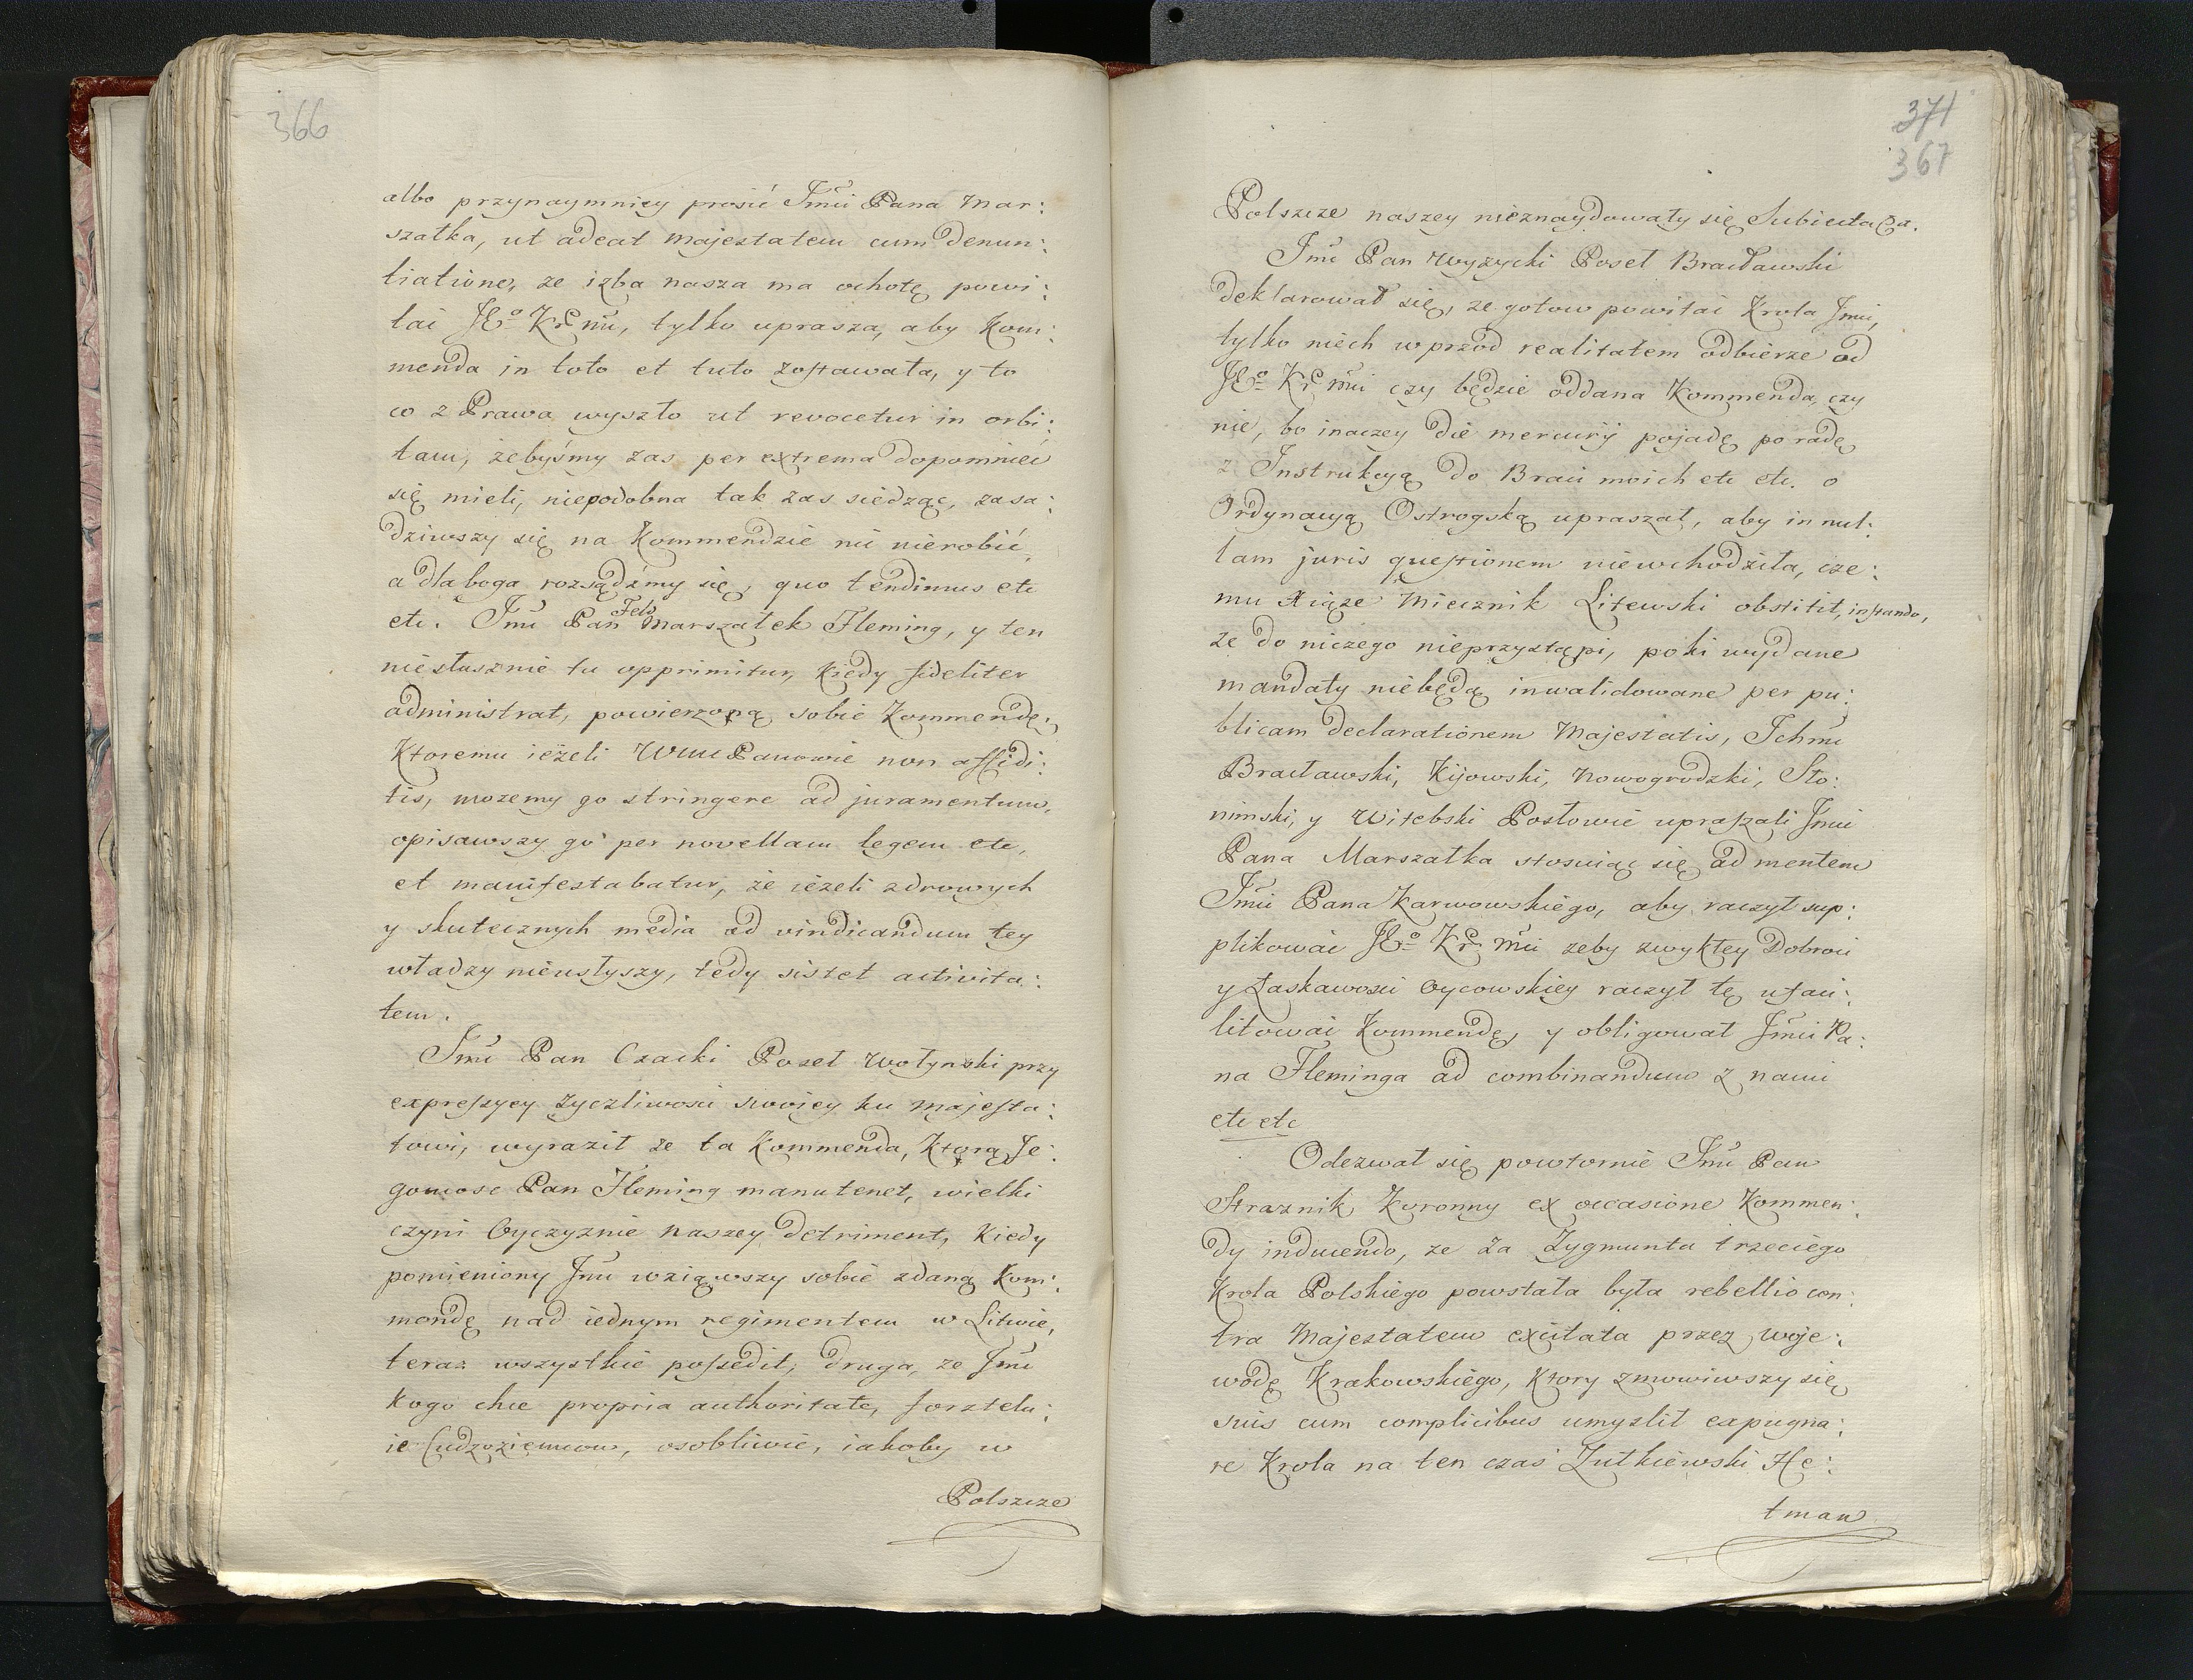 366
albo przynaymniey prosić Jmći Pana Mar:
szałka, ut adeat Majestatem cum denun:
tiatione, ze izba nasza ma ochotę powi:
tać JEo Krc mć, tylko uprasza, aby Kom:
menda in toto et tuto zostawała, y to
co z Prawa wyszło ut revocetur in orbi:
tam, żebyśmy zas per extrema dopomnieć
się mieli, niepodobna tak zas siedząc, zasa:
dziwszy się na Kommendzie nic nierobić,
a dla boga rozsądźmy się, quo tendimus etc
etc. Jmć Pan Feld Marszałek Fleming, y ten
niesłusznie tu opprimitur, kiedy fideliter
administrat, powierzoną sobie Kommendę,
Ktoremu ieżeli Wmć Panowie non affidi:
tis, mozemy go stringere ad juramentum,
opisawszy go per novellam legem etc,
et manifestabatur, że ieżeli zdrowych
y skutecznych media ad vindicandum tey
władzy nieusłyszy, tedy sistet activita:
tem.
Jmć Pan Czacki Poseł Wołynski przy
expressyey zyczliwosci swoiey ku Majesta:
towi, wyraził ze ta Kommenda, Ktorą Je:
gomosc Pan Fleming manutenet, wielki
czyni Oyczyznie naszey detriment, kiedy
pomieniony Jmć wziąwszy sobie zdaną Kom:
mendę nad iednym regimentem w Litwie,
teraz wszystkie possedit, druga, ze Jmć
kogo chce propria authoritate, forsztelu:
ie Cudzoziemcow, osobliwie, iakoby w
Polszcze
371
367
Polszcze naszey nieznaydowały się Subiecta etc.
Jmć Pan Wyzycki Poseł Bracławski
deklarował się, ze gotow powitać Krola Jmci,
tylko niech wprzod realitatem odbierze od
JEo Krc mći czy będzie oddana Kommenda, czy
nie, bo inaczey die mercurij pojadę po radę
z Instrukcyą do Braci moich etc etc. o
Ordynacyą Ostrogską upraszał, aby in nul:
lam juris questionem niewchodziła, cze:
mu Xiąze Miecznik Litewski obstitit, instando,
ze do niczego nieprzystąpi, poki wydane
mandaty niebędą inwalidowane per pu:
blicam declarationem Majestatis, Ichmć
Bracławski, Kijowski, Nowogrodzki, Sło:
nimski, y Witebski Posłowie upraszali Jmći
Pana Marszałka stosuiąc się ad mentem
Jmći Pana Karwowskiego, aby raczył sup:
plikować JEo Krc mći zeby zwykłey Dobroci
y Łaskawosci Oycowskiey raczył tę ufaci:
litować Kommendę, y obligował Jmći Pa:
na Fleminga ad combinandum z nami
etc etc
Odezwał się powtornie Jmć Pan
Straznik Koronny ex occasione Kommen:
dy inducendo, ze za Zygmunta trzeciego
Krola Polskiego powstała była rebellio con:
tra Majestatem excitata przez woje:
wodę Krakowskiego, Ktory zmowiwszy się
suis cum complicibus umyslił expugna:
re Krola na ten czas Zułkiewski He:
tman